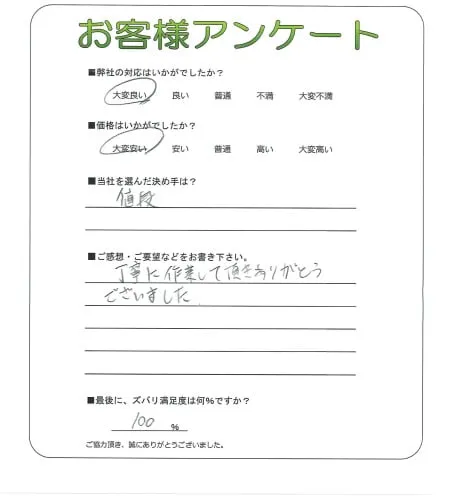 お客様アンケート
■弊社の対応はいかがでしたか?
大変良い 良い 普通 不満 大変不満
■価格はいかがでしたか?
大変安い 安い 普通 高い 大変高い
■当社を選んだ決め手は?
値段
■ご感想・ご要望などをお書き下さい。
丁寧に作業して頂きありがとう
ございました
■最後に、ズバリ満足度は何%ですか?
100 %
ご協力頂き、誠にありがとうございました。